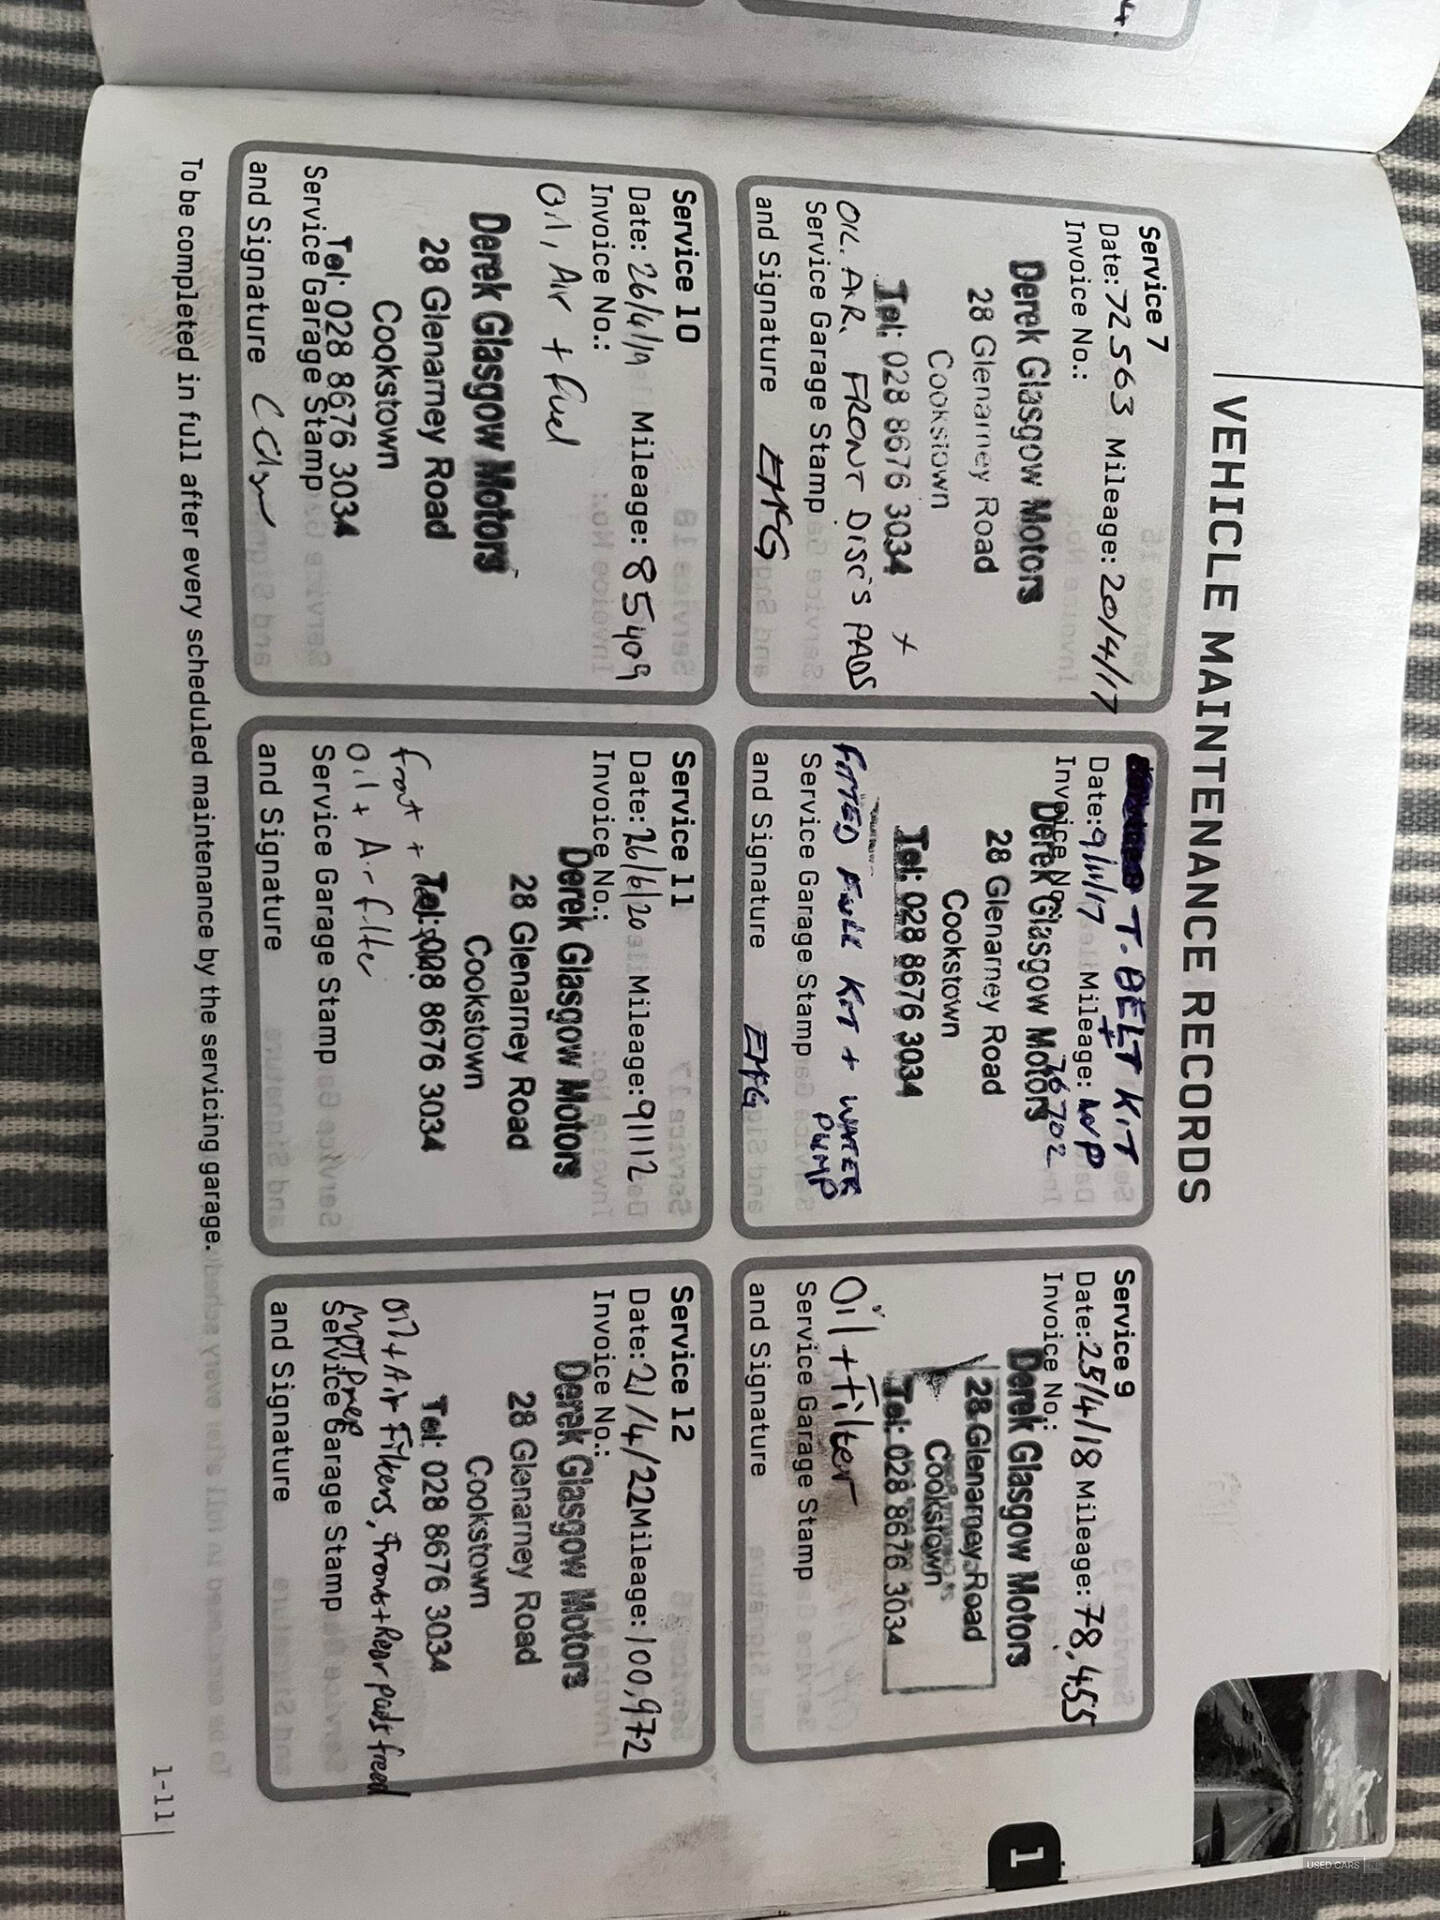 VEHICLE MAINTENANCE RECORDS
Service 7
Date: 72563 Mileage: 20/4/17
Invoice No.:
Derek Glasgow Motors
28 Glenarney Road
Cookstown
Tel: 028 8676 3034 +
OIL. AIR. FRONT DISC'S PADS
Service Garage Stamp
and Signature EHG
T. BELT KIT
+
Date: 9/11/17 Mileage: WP
Invoice No.: 76702
Derek Glasgow Motors
28 Glenarney Road
Cookstown
Tel: 028 8676 3034
FITTED FULL KIT + WATER
PUMP
Service Garage Stamp
and Signature EHG
Service 9
Date: 25/4/18 Mileage: 78,455
Invoice No.:
Derek Glasgow Motors
28 Glenarney Road
Cookstown
Tel: 028 8676 3034
Oil + Filter
Service Garage Stamp
and Signature
Service 10
Date: 26/4/19 Mileage: 85409
Invoice No.:
Oil, Air + Fuel
Derek Glasgow Motors
28 Glenarney Road
Cookstown
Tel: 028 8676 3034
Service Garage Stamp
and Signature
Service 11
Date: 26/6/20 Mileage: 91112
Invoice No.:
Derek Glasgow Motors
28 Glenarney Road
Cookstown
Tel: 028 8676 3034
front +
Oil + Air filter
Service Garage Stamp
and Signature
Service 12
Date: 21/4/22 Mileage: 100,972
Invoice No.:
Derek Glasgow Motors
28 Glenarney Road
Cookstown
Tel: 028 8676 3034
Oil + Air Filters, Front + Rear pads freed
MOT Prep
Service Garage Stamp
and Signature
To be completed in full after every scheduled maintenance by the servicing garage.
1-11
1
USED CARS